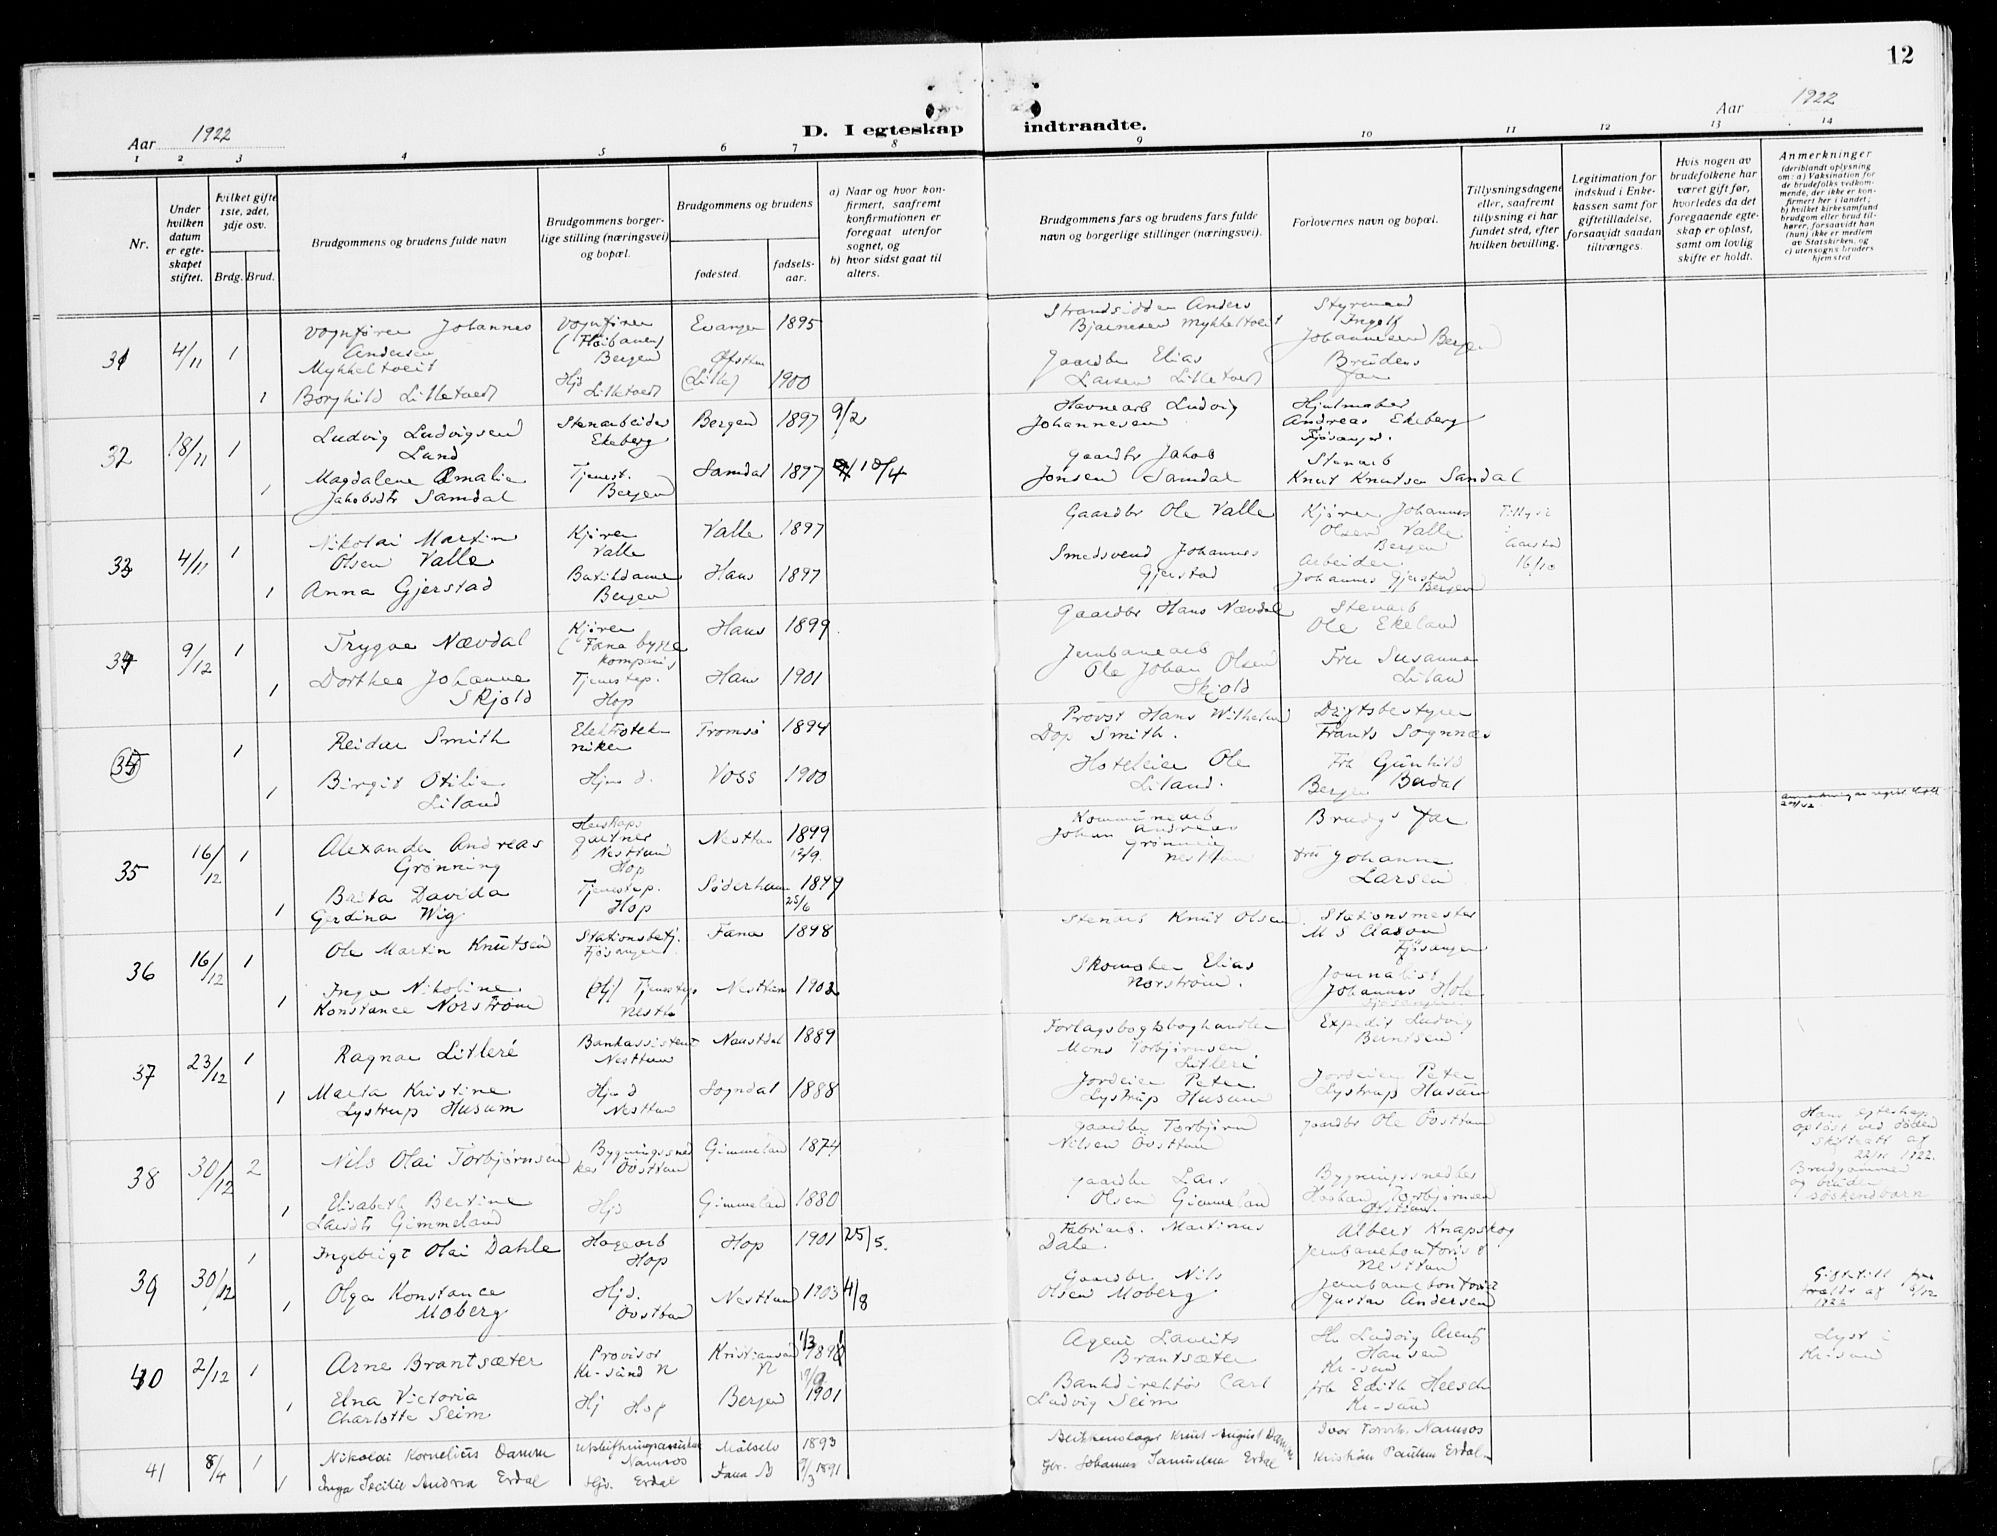 12
Aar 1922
D. I egteskap indtraadte.
Aar 1922
1 2 3 4 5 6 7 8 9 10 11 12 13 14
Nr.
Under hvilken datum er egteskapet stiftet.
Hvilket gifte 1ste, 2det, 3dje osv.
Brdg. Brud.
Brudgommens og brudens fulde navn
Brudgommens borgerlige stilling (næringsvei) og bopæl.
Brudgommens og brudens
fødested.
fødselsaar.
a) Naar og hvor konfirmert, saafremt konfirmationen er foregaat utenfor sognet, og
b) hvor sidst gaat til alters.
Brudgommens fars og brudens fars fulde navn og borgerlige stillinger (næringsvei).
Forlovernes navn og bopæl.
Tillysningsdagene eller, saafremt tillysning ei har fundet sted, efter hvilken bevilling.
Legitimation for indskud i Enkekassen samt for giftetilladelse, forsaavidt saadan tiltrænges.
Hvis nogen av brudefolkene har været gift før, hvorledes da det foregaaende egteskap er opløst, samt om lovlig skifte er holdt.
Anmerkninger (deriblandt oplysning om: a) Vaksination for de brudefolks vedkommende, der ikke er konfirmert her i landet; b) hvilket kirkesamfund brudgom eller brud tilhører, forsaavidt han (hun) ikke er medlem av Statskirken, og c) utensogns bruders hjemsted
31 4/11 1
Vognfører Johannes
Andersen
Mykheltveit
Vognfører
Bergen
Evanger 1895
Strandsidder Anders
Bjarnesen Mykheltveit
Styrmand
Ingolf
Johannesen Bergen
1 Borghild Lilletvedt
Hjs Lilletvedt
(Lille) 1900
Gaardbr Elias
Larsen Lilletvedt
Brudens
Far
32 18/11 1
Ludvig Ludvigsen
Lund
Stenarbeider
Ekeberg
Bergen 1897 9/2
Havnearb Ludvig
Johannesen
Hjulmaker
Andreas Ekeberg
Fjøsanger.
1 Magdalene Amalie
Jakobsdtr Samdal
Tjenest.
Bergen
Samdal 1897 10/4
Gaardbr Jakob
Jonsen Samdal
Stenarb
Knut Knutsen Sandal
33 4/11 1
Nikolai Martin
Olsen Valle
Kjører
Valle
Valle 1897
Gaardbr Ole Valle
Kjører Johannes
Olsen Valle
Bergen
Tillyst
i
Aarstad
16/10
1 Anna Gjerstad
Butikdame
Bergen
Haus 1897
Smedsvend Johannes
Gjerstad
Arbeider
Johannes Gjerstad
Bergen
34 9/12 1
Trygve Nævdal
Kjører
(Fana bygge
kompani)
Haus 1899
Gaardbr Hans Nævdal
Stenarb
Ole Ekeland
1 Dorthea Johanne
Skjold
Tjenestep.
Hop
Haus 1901
Jernbanearb
Ole Johan Olsen
Skjold
Fru Susanna
Liland
35 1
Reidar Smith
Elektrotek
niker
Tromsø 1894
Provst Hans Wilhelm
Dop Smith.
Driftsbestyrer
Frants Sognnæs
1 Birgit Otilie
Liland
Hjem d.
Voss 1900
Hoteleier Ole
Liland.
Fru Gunhild
Bergen Berdal
35 16/12 1
Alexander Andreas
Grønning
Herskaps
gartner
Nesttun
Hop
Nesttun 1899
12/9.
Kommunearb
Johan Andreas
Grønning
Nesttun
Brudgs far
1 Gerdina Wig
Davida
Tjenestep.
Hop
Søderhamn 1899
25/6
Fru Johanne
Larsen
36 16/12 1
Ole Martin Knutsen
Stationsbetj.
Fjøsanger
Fana 1898
Stenarb Knut Olsen
Stationsmester
M S Clason
Fjøsanger
1 Inga Nikoline
Konstance Norstrøm
Tjenestep
Nestt
Nesttun 1902
Skomaker Elias
Norstrøm.
Journalist
Johannes Hole
Fjøsanger
37 23/12 1
Ragnar Litleré
Bankassistent
Nesttun
Naustdal 1889
Forlagsboghandler
Mons Torbjørnsen
Litleré
Expedit Ludvig
Berntsen
1 Marta Kristine
Lystrup Husum
Hjem d
Nesttun
Sogndal 1888
Jordeier Peter
Lystrup Husum
Jordeier Peter
Lystrup Husum
38 30/12 2
Nils Olai Torbjørnsen
Bygningssned
ker Øvsttun
Gimmeland 1874
Gaardbr Torbjørn
Nilsen Øvsttun
Gaardbr Ole Øvsttun
Hans egteskap
opløst ved døden
Skifteatt af
22/11 1922.
Brudgommen
og bruden
søskendbarn
1 Elisabeth Bertine
Larsdtr Gimmeland
Hjs
Gimmeland 1880
Gaardbr Lars
Olsen Gimmeland
Bygningssnedker
Haakon Torbjørnsen
Øvsttun.
39 30/12 1
Ingebrigt Olai Dahle
Hagearb
Hop
Hop 1901 25/5.
Fabrikarb. Martinus
Dale.
Albert Knapskog
Jernbanekontorist
Nesttun
1 Olga Konstance
Moberg
Hjs.
Øvsttun
Nesttun 1903 4/8
Gaardbr Nils
Olsen Moberg
Jernbanekontorist
Gustav Andersen
40 2/12 1
Arne Brantsæter
Provisor
Kr-sund N
Kristiansund
N
1/3
Agent Laurits
Brantsæter
Hr Ludvig Arent
Hansen
Kr-sund
Lyst i
Kr-sund
1 Elna Victoria
Charlotte Seim
Hj Hop
Bergen 1901
Bankdirektør Carl
Ludvig Seim
frk Edith Heesch
Kr-sund
41 8/4 1
Nikolai Kornelius Damm
Namsos
Målselv 1893
Blikkenslager Knut August Damm
Namsos
1 Inga Secilie Andrea Erdal
Hjs. Erdal
Fana 9/3 1891
Gbr. Johannes Samuelsen Erdal
Kristian Paulsen Erdal